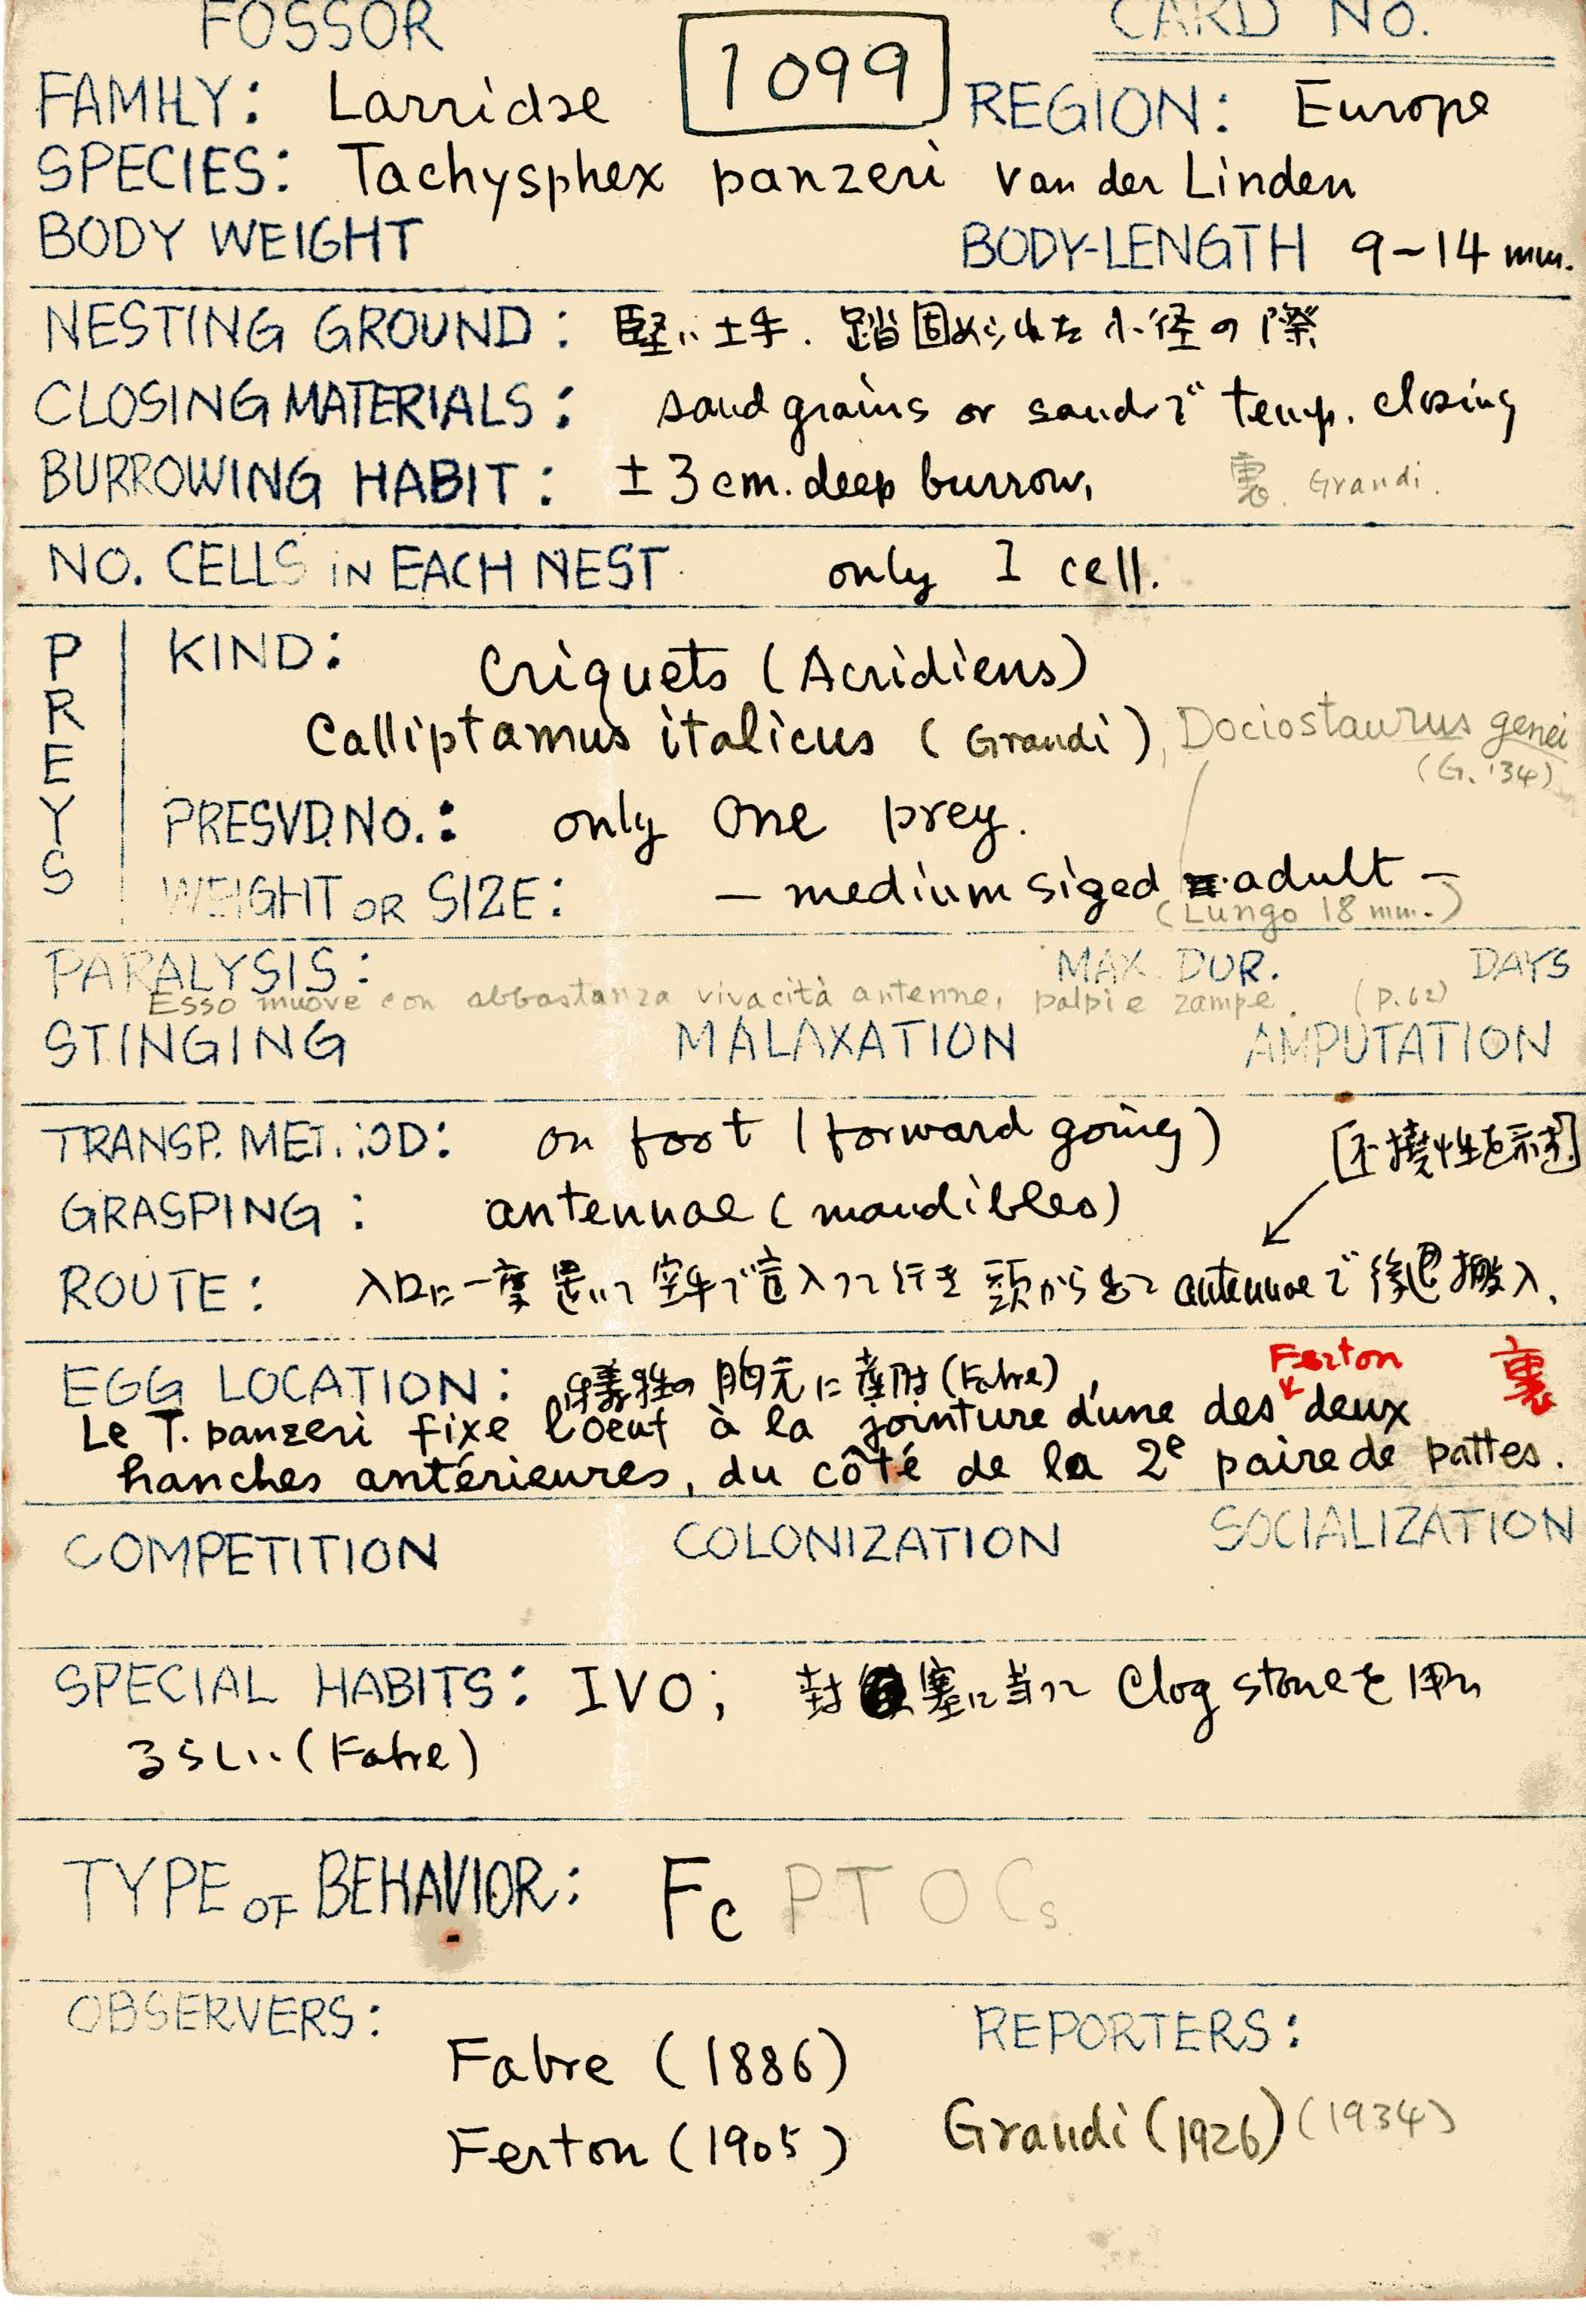 FOSSOR CARD NO.
1099
FAMILY: Larridae REGION: Europe
SPECIES: Tachysphex panzeri van der Linden
BODY WEIGHT BODY-LENGTH 9~14 mm.
NESTING GROUND: 堅い土手. 踏固められた小径の際
CLOSING MATERIALS: sand grains or sandで temp. closing
BURROWING HABIT: ±3cm. deep burrow, 裏. Grandi.
NO. CELLS IN EACH NEST only 1 cell.
PREYS
KIND: Criquets (Acridiens)
Calliptamus italicus (Grandi), Dociostaurus genei
(G. '34)
PRESVD. NO.: only one prey.
WEIGHT OR SIZE: — medium sized adult —
(Lungo 18 mm.)
PARALYSIS: MAX. DUR. DAYS
Esso muove con abbastanza vivacità antenne, palpi e zampe. (P.62)
STINGING MALAXATION AMPUTATION
TRANSP. METHOD: on foot (forward going)
GRASPING: antennae (mandibles)
ROUTE: 入口に一度置いて空手で這入って行き頭から出て antennaeで後退搬入.
EGG LOCATION: 犠牲の胸元に産附 (Fabre), Ferton 裏
Le T. panzeri fixe l'oeuf à la jointure d'une des deux
hanches antérieures, du côté de la 2e paire de pattes.
COMPETITION COLONIZATION SOCIALIZATION
SPECIAL HABITS: IVO; 封塞に当って Clog stoneを用い
るらしい (Fabre)
TYPE OF BEHAVIOR: Fc PTOCs
OBSERVERS: REPORTERS:
Fabre (1886)
Ferton (1905) Grandi (1926) (1934)